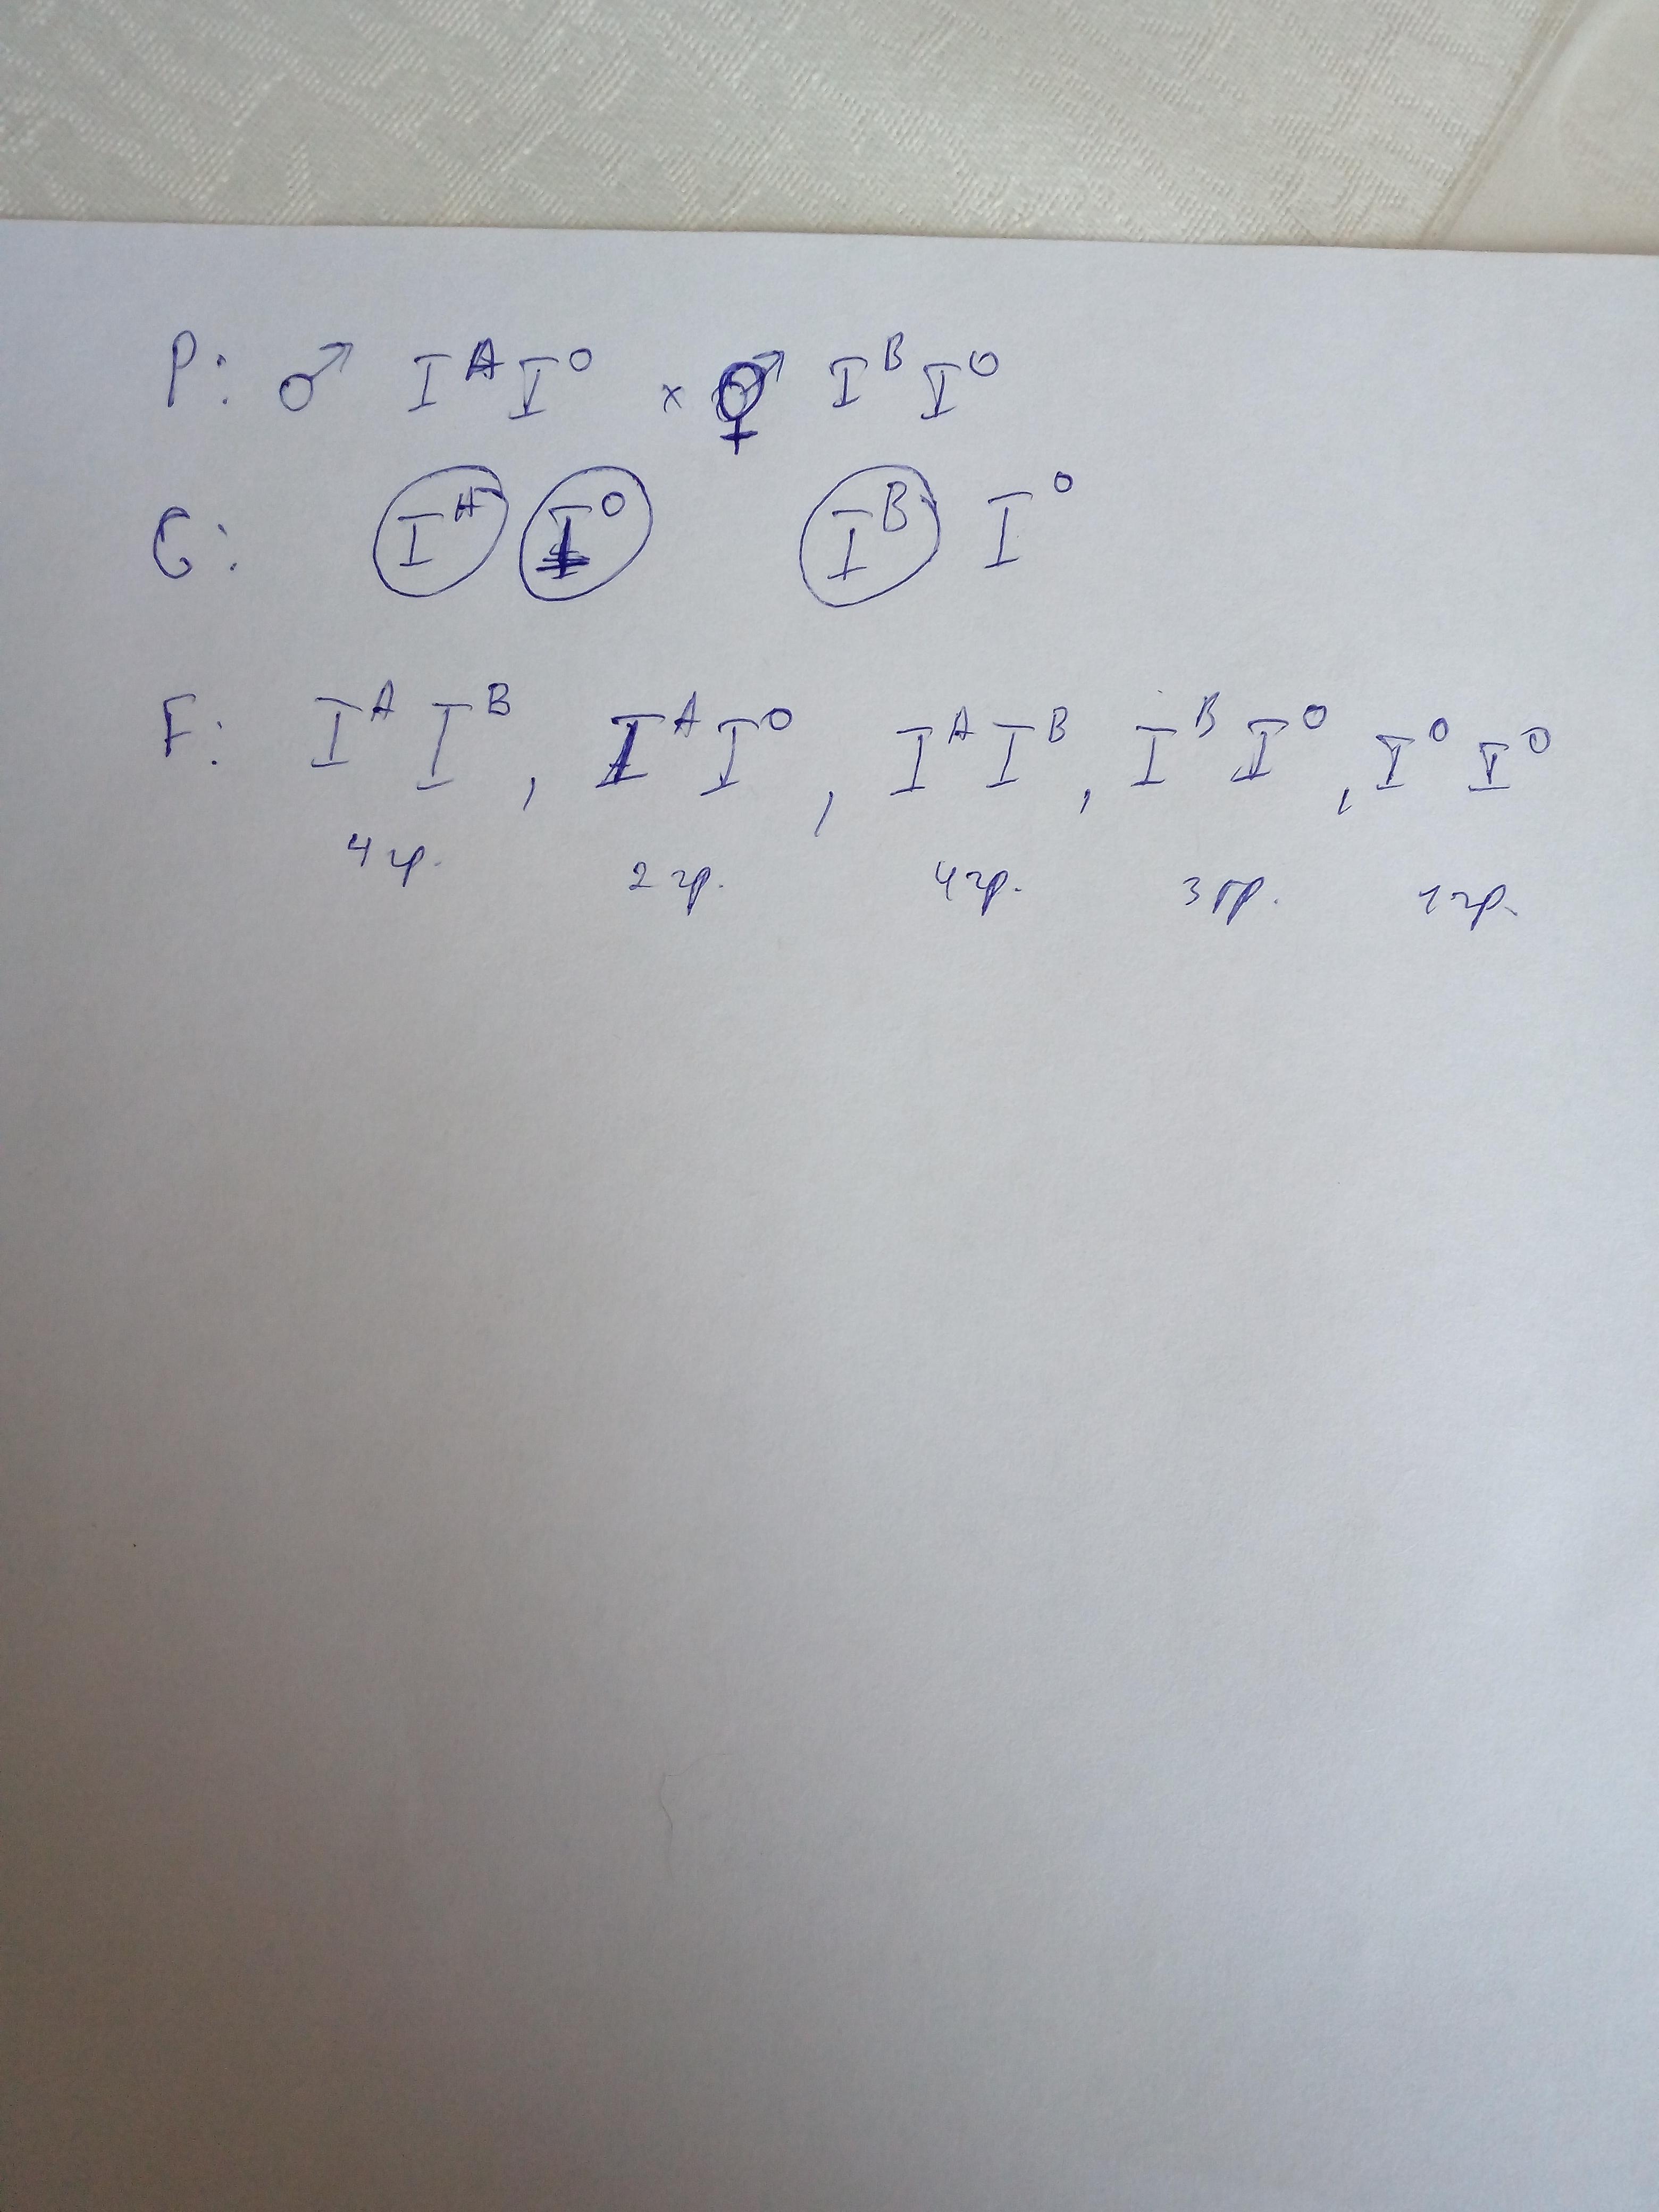 P: ♂ I^A I^O × ♀ I^B I^O
G: I^A I^O I^B I^O
F: I^A I^B, I^A I^O, I^A I^B, I^B I^O, I^O I^O
4 гр. 2 гр. 4 гр. 3 гр. 1 гр.